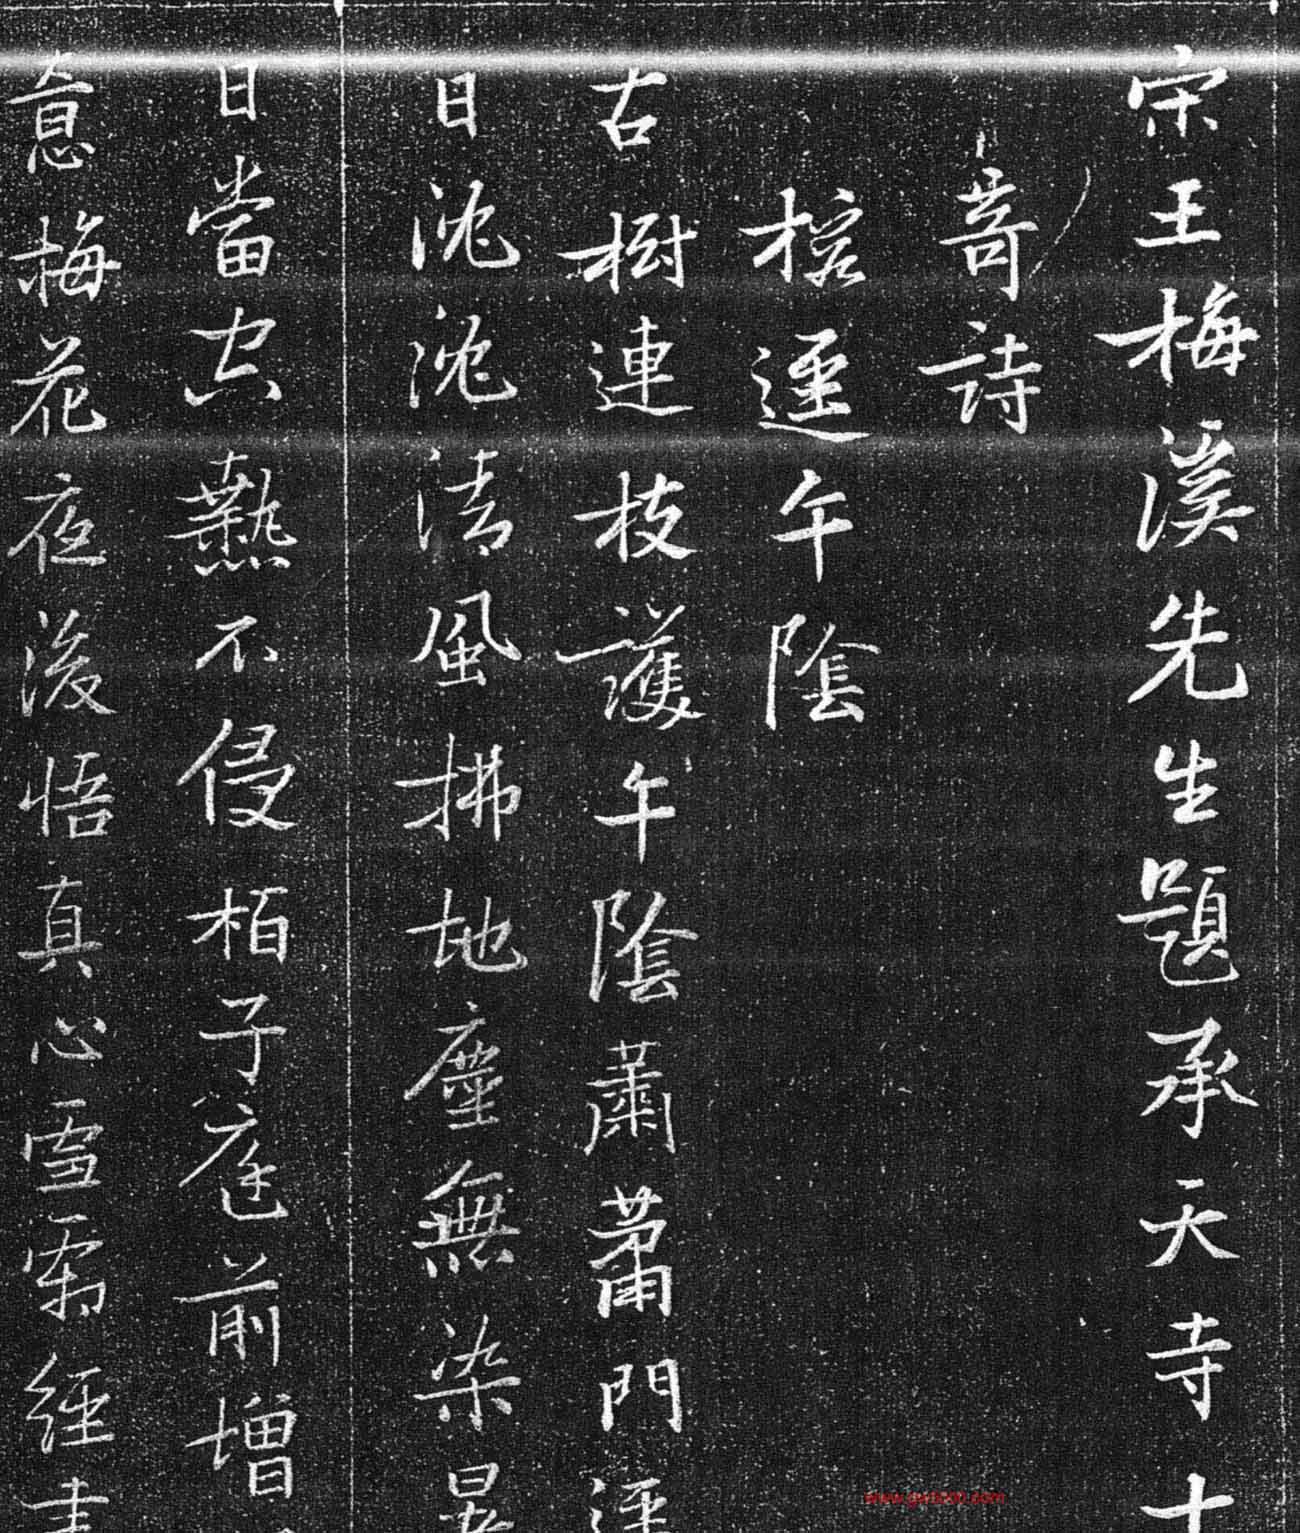 宋王梅溪先生題承天寺十
奇詩
榕逕午陰
古樹連枝護午陰蕭蕭門逕
日沈沈清風拂地塵無染暑
日當空熱不侵栢子庭前增
意梅花夜後悟真心雪霜經
www.gwb000.com